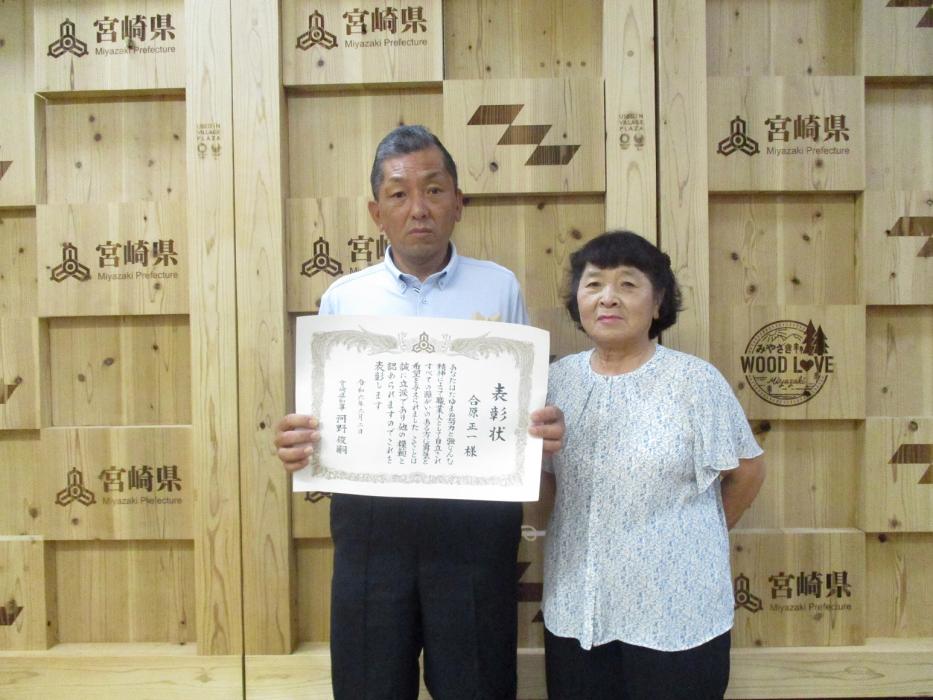 宮崎県
Miyazaki Prefecture
宮崎県
Miyazaki Prefecture
宮崎県
Miyazaki Prefecture
宮崎県
Miyazaki Prefecture
宮
宮崎県
Miyazaki Prefecture
宮崎県
Miyazaki Prefecture
みやざき
WOOD LOVE
Miyazaki
表彰状
合原正一様
あなたはたゆまぬ努力と強じんな
精神によって職業人として自立され
すべての障がいのある方に勇気と
希望を与えられました このことは
誠に立派であり他の模範と
認められますのでこれを
表彰します
宮崎県知事 河野俊嗣